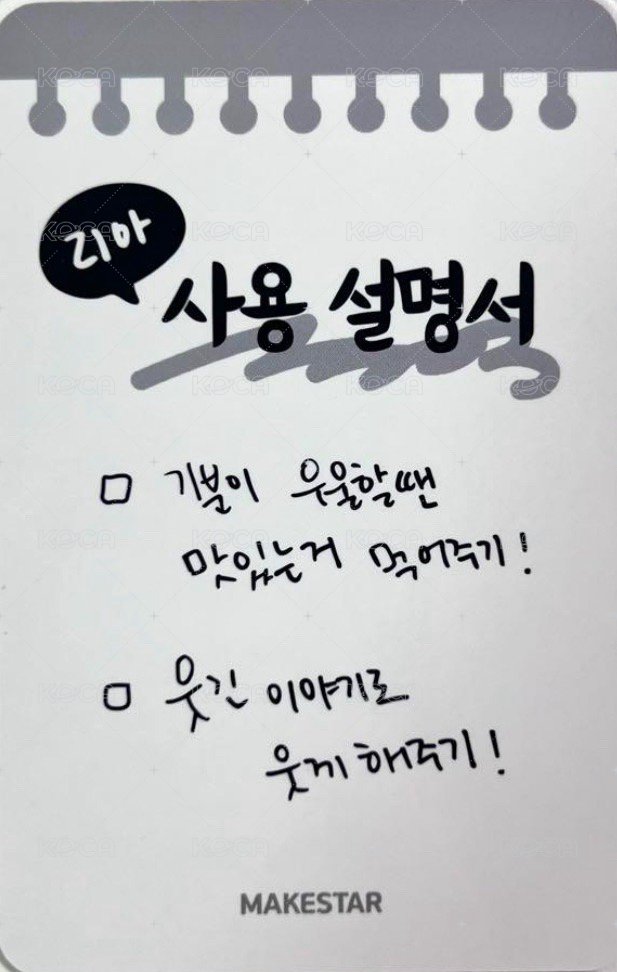 리아
사용 설명서
□ 기분이 우울할땐
맛있는거 먹어주기!
□ 웃긴 이야기로
웃게 해주기!
MAKESTAR